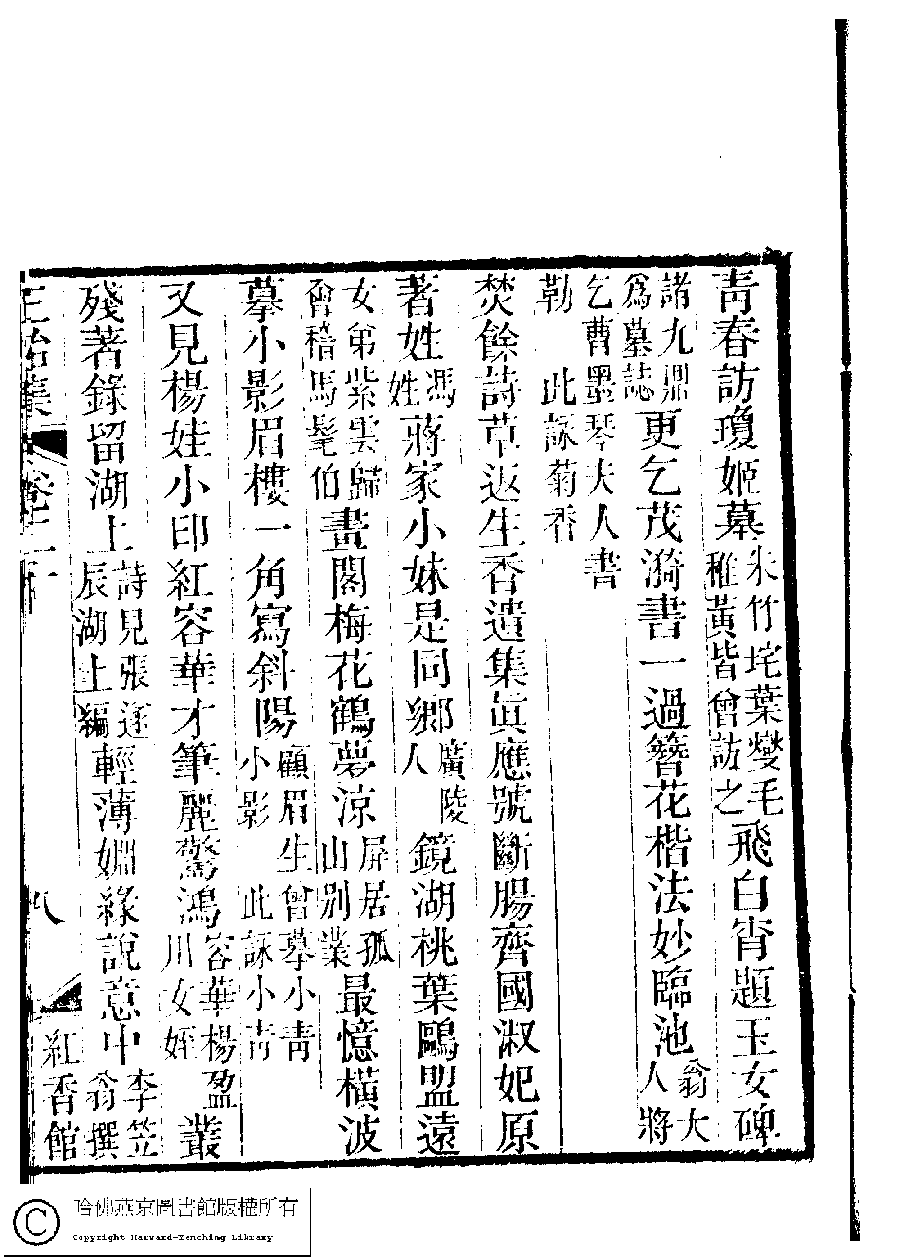 青春訪瓊姬墓朱竹垞葉燮毛稚黃皆曾訪之飛白宵題玉女碑
諸九鼎爲墓誌更乞茂漪書一過簪花楷法妙臨池翁大人將
乞曹墨琴夫人書勒 此詠菊香
焚餘詩草返生香遺集眞應號斷腸齊國淑妃原
著姓馮姓蔣家小妹是同鄉廣陵人鏡湖桃葉鷗盟遠
女弟紫雲歸會稽馬髦伯畫閣梅花鶴夢涼屏居孤山別業最憶橫波
摹小影眉樓一角寫斜陽顧眉生曾摹小青小影 此詠小青
又見楊娃小印紅容華才筆麗驚鴻容華楊盈川女姪叢
殘著錄留湖上詩見張遂辰湖上編輕薄姻緣說意中李笠翁撰
正始集 卷二十 八 紅香館
哈佛燕京圖書館版權所有
Copyright Harvard-Yenching Library